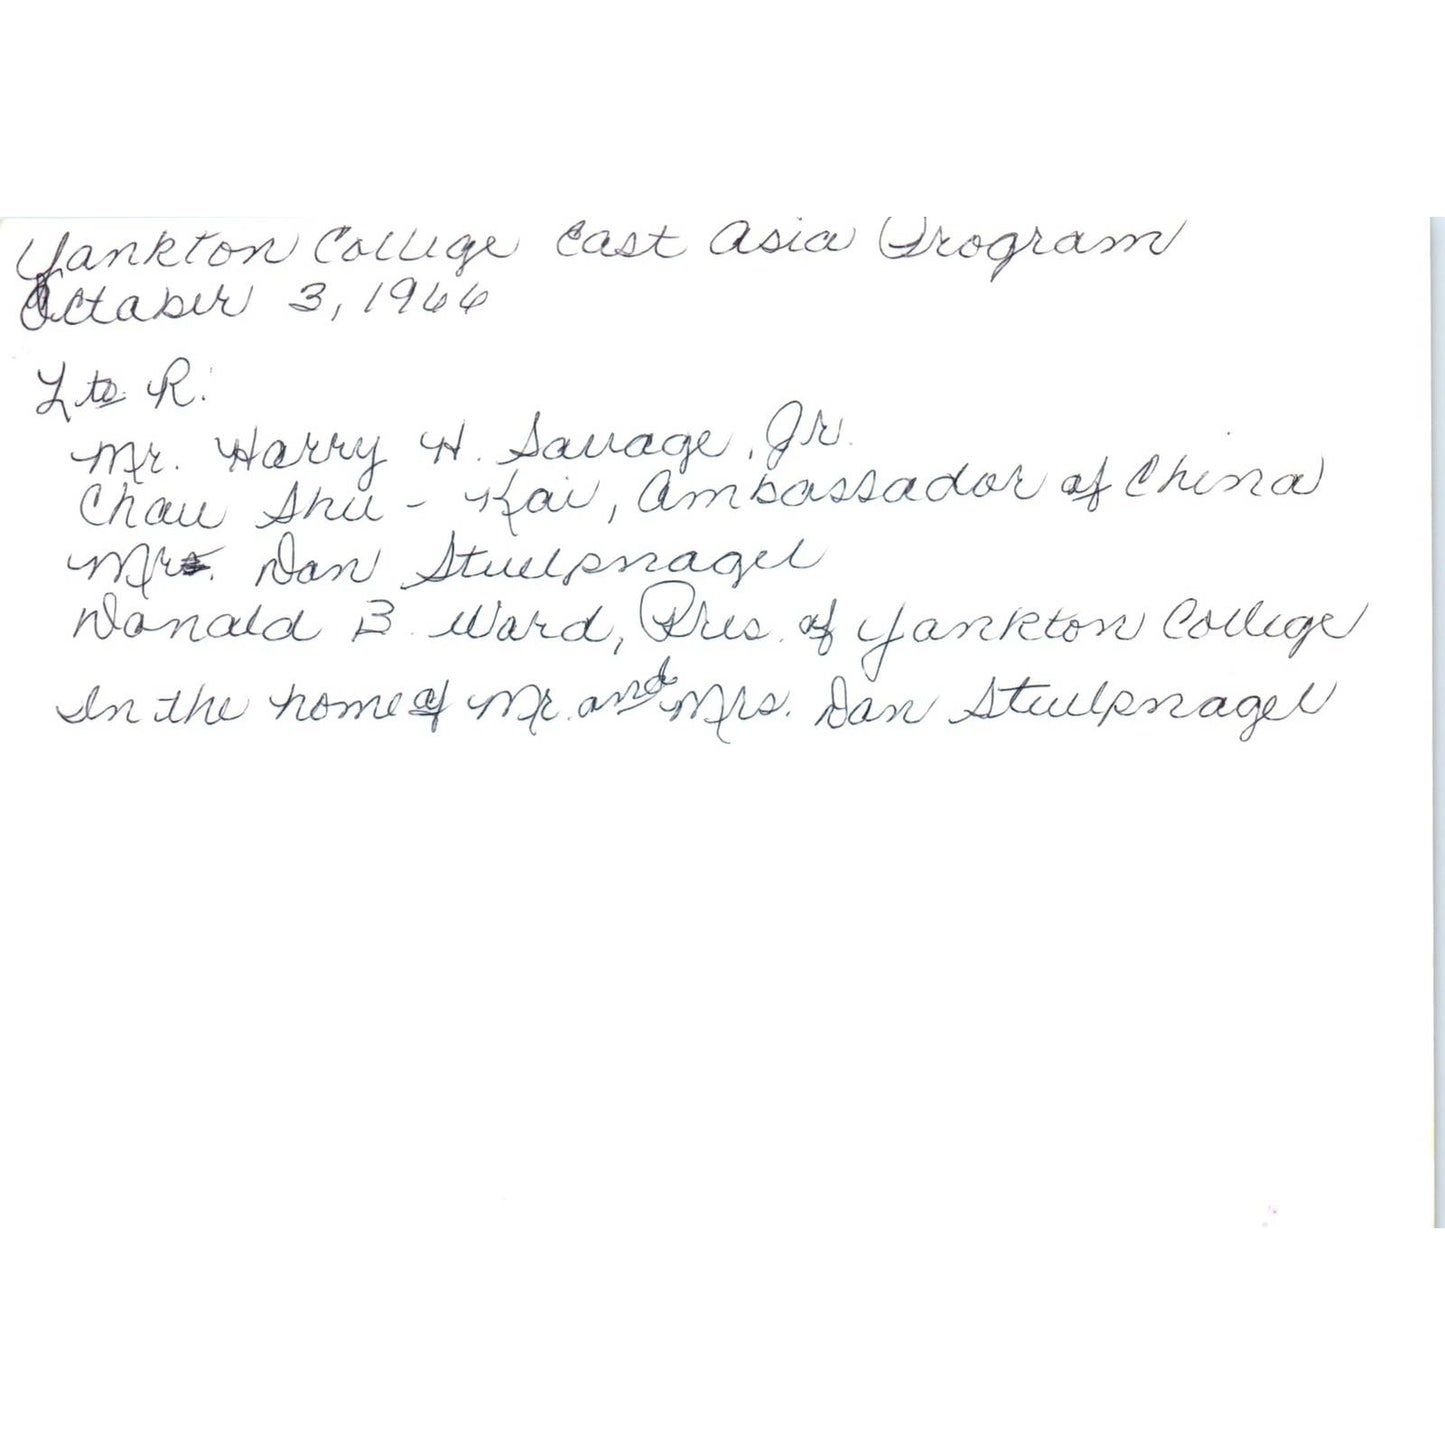 Yankton College East Asia Program
October 3, 1966
L to R:
Mr. Harry H. Savage, Jr.
Chau Shu-Kai, Ambassador of China
Mr. Dan Stuelpnagel
Donald B. Ward, Pres. of Yankton College
In the home of Mr. and Mrs. Dan Stuelpnagel